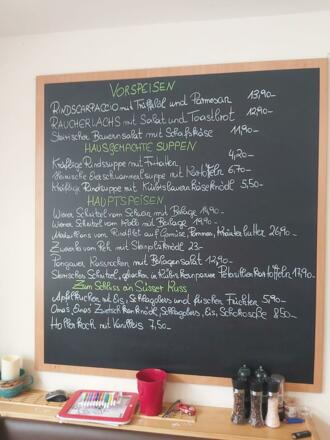 VORSPEISEN
RINDSCARPACCIO mit Trüffelöl und Parmesan 13,90-
RÄUCHERLACHS mit Salat und Toastbrot 12,90-
Steirischer Bauernsalat mit Schafskäse 11,90-
HAUSGEMACHTE SUPPEN
Kräftige Rindssuppe mit Frittaten 4,20-
Eierschwammerlsuppe mit Kartoffeln 6,70-
Kräftige Rindsuppe mit Kaspressknödel 5,50-
HAUPTSPEISEN
Wiener Schnitzel vom Schwein mit Beilage 14,90-
Wiener Schnitzel vom Kalb mit Beilage 19,90-
vom Rindsfilet auf Gemüse, Pommes, Kräuterbutter 26,90-
vom Reh mit Steinpilzknödel 23-
mit Blattsalat 12,90-
Steirisches Schnitzel, gebacken in Kürbiskernpanier 17,90-
Zum Schluss ein Süsser Kuss
Apfelkuchen mit Eis, Schlagobers und frischen Früchten 5,90-
Omas Zwetschkenknödel, Schlagobers, Eis, Schokosoße 8,50-
mit Vanilleeis 7,50-